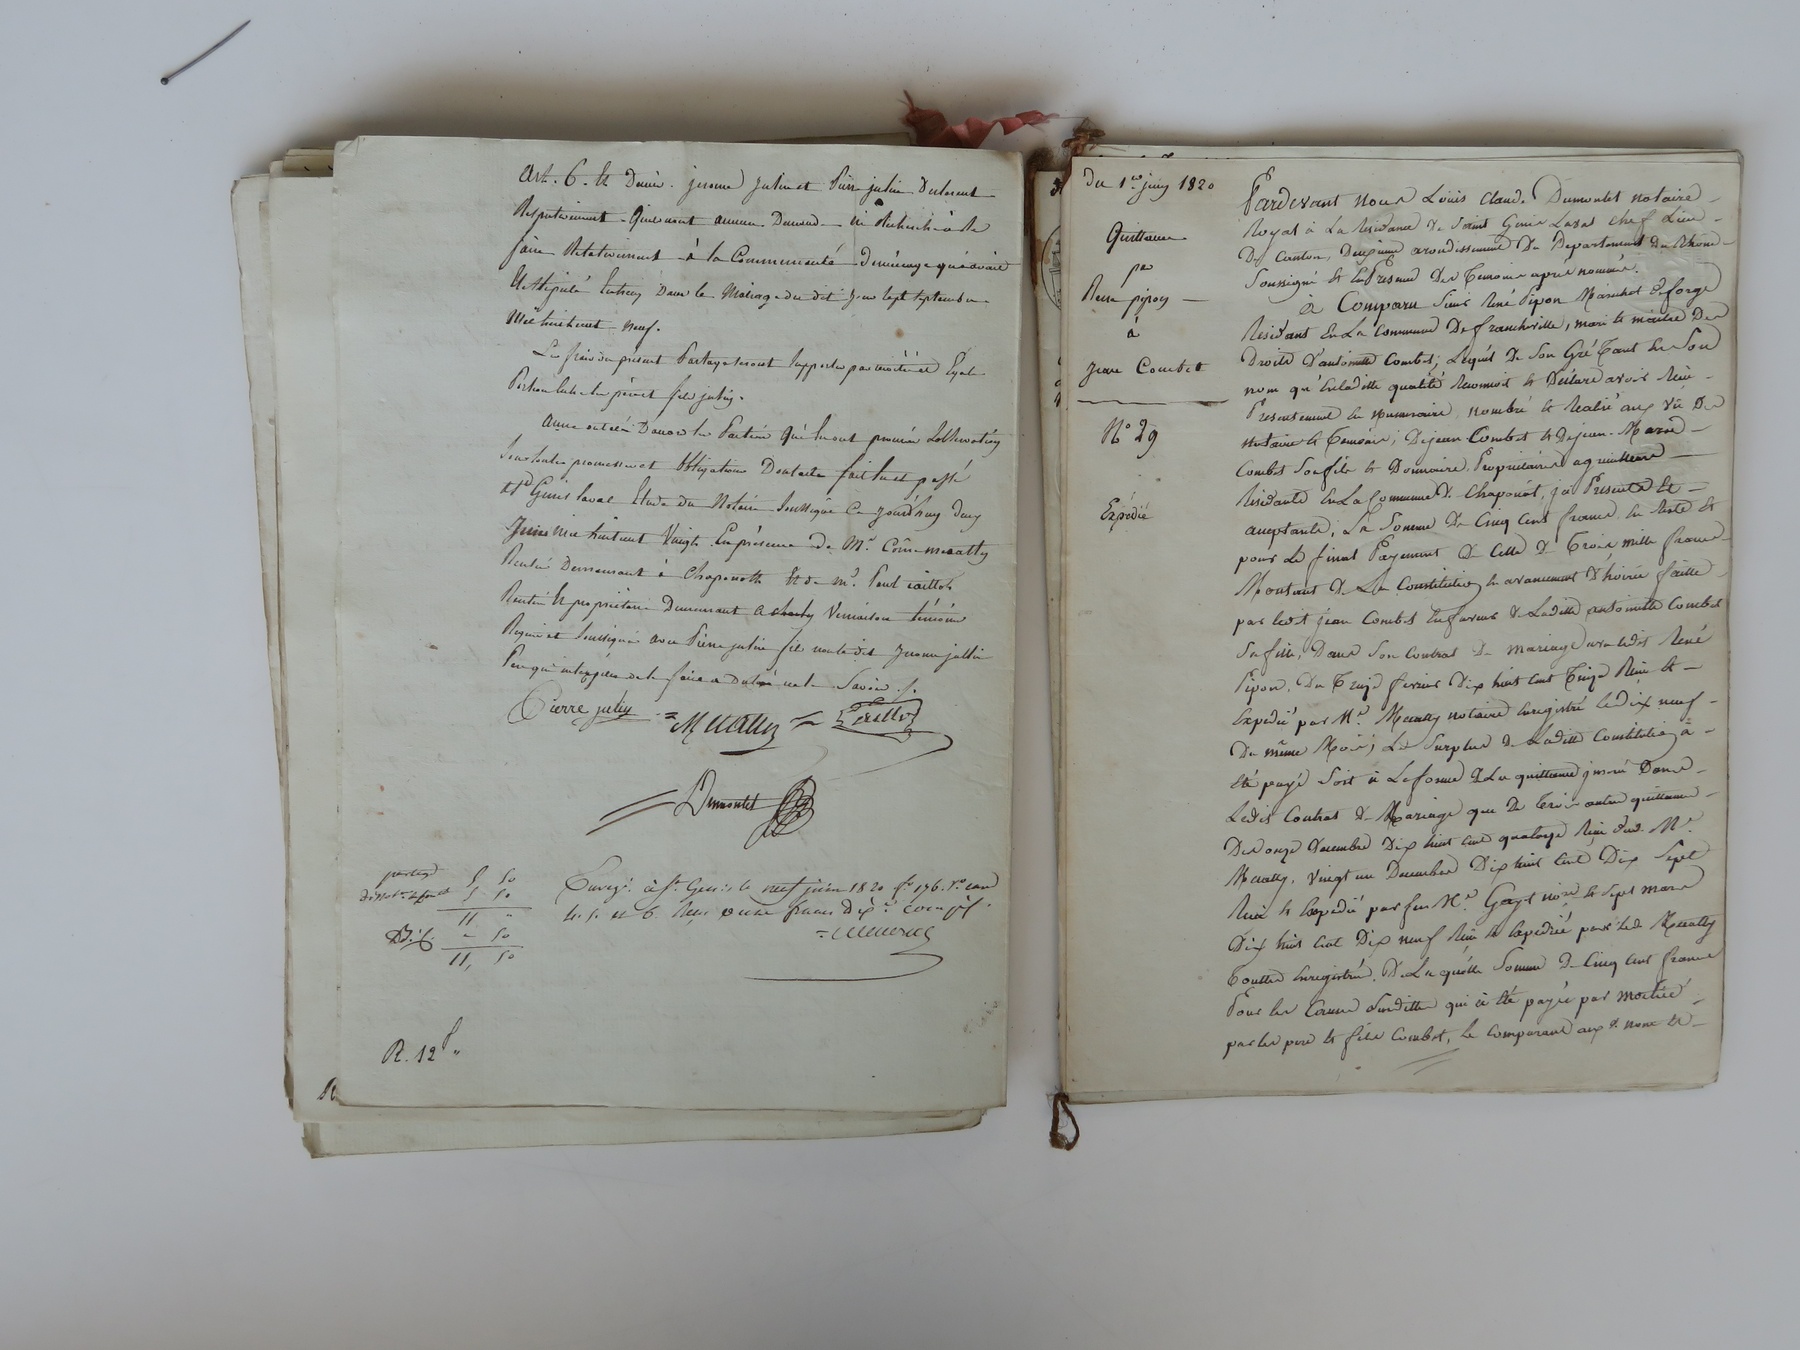 Art. 6. & Dernier. jerome Julin et Pierre julin Declarent
Respectivement qu'ils n'ont aucune Demande ni Recherche à Se
faire Relativement à la Communauté
Stipulée Entreux Dans le Mariage du dit jour sept septembre
Mil huit cent neuf.
Les frais du présent Partage seront Supportés par moitié et Egale
Portion Entre les père et fils julin.
Dont acte fait lu et passé
à St Genis laval Etude du Notaire Soussigné Ce jourd'huy deux
Juin mil huit cent Vingt En présence de Mr. Côme meally
Rentier Demeurant à Chaponost Et de Mr. Paul caillot
Rentier & propriétaire Demeurant a charly Vernaison témoins
Requis et Soussignés avec Pierre julin fils non le dit Jerome jullin
Pour qui interpellé de le faire a Declaré ne le Savoir ./.
Pierre julin = Meally = Caillot
Dumontet
partage 5 50
5 50
11 "
D. C. - 50
11, 50
Enreg. à St. Genis le neuf juin 1820 fo. 176. Vo. case
4. 5. et 6. Reçu onze francs Dixe. compris.
R. 12 f "
du 1er juin 1820
Quittance
par
Rene pipon
à
Jean Combet
No 29
Expédié
Pardevant nous Louis Claude Dumontet notaire
Royal à La Residence de Saint Genis Laval Chef Lieu
De Canton, Deuxième arrondissement Du Departement du Rhône
Soussigné & En Présence Des Temoins après nommés.
à Comparu Sieur René Pipon Marechal de forge
Residant En La Commune De francheville, mari & maitre Des
Droits D'antoinette Combet; Lequel De Son Gré Tant En Son
nom qu'En ladite qualité Reconnoit & Déclare avoir Reçu
Presentement En numeraire nombré & Realisé aux Vû Des
notaire & Temoins; De jean Combet & De jean Marie
Combet Son fils & Donnataire Propriétaires agriculteurs
Residants En La Commune De Chaponost, ici Présents Et
acceptants; La Somme De Cinq Cent francs En Reste &
pour Le final Payement De Celle De Trois mille francs
Montant De La Constitution En avancement D'hoirie faite
par ledit jean Combet En faveur De Ladite antoinette Combet
Sa fille, Dans Son Contrat De mariage avec Ledit René
Pipon, Du Treize fevrier Dix huit cent Treize Reçu &
Expédié par Me. Meally notaire Enregistré Le dix neuf
Du même Mois; Le Surplus De Ladite Constitution à
été payé Soit à La forme De La quittance inseré Dans
Ledit Contrat De Mariage que De Trois autres quittances
Des onze Decembre Dix huit cent quatorze Reçu dud. Me.
Meally, Vingt un Decembre Dix huit Cent Dix Sept
Reçu & Expédié par feu Me. Gayet nore. & Sept mars
Dix huit Cent Dix neuf Reçu & Expédiée par led. Meally
Toutes Enregistrées. De La quelle Somme De Cinq Cent francs
Pour les Causes Susdittes qui à été payée par moitié
par les pere & fils Combet, Le Comparant aux d. noms &